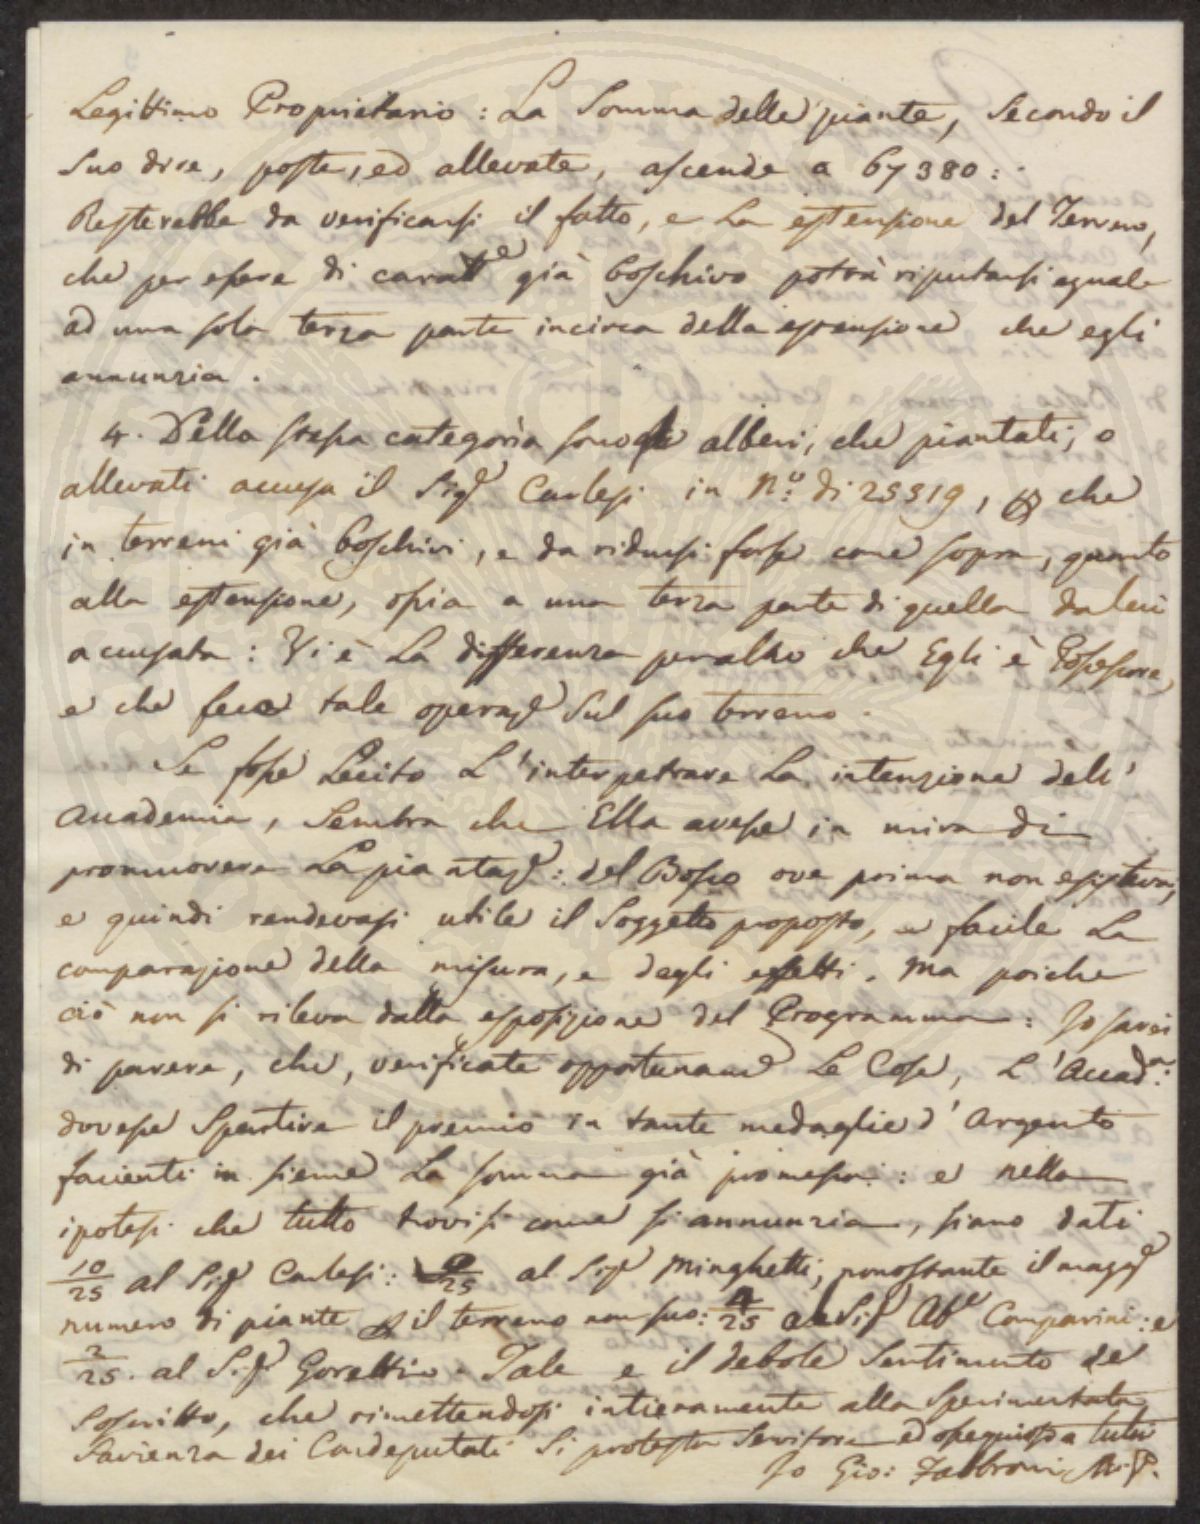 Legittimo Proprietario: La Somma delle piante, Secondo il
Suo dire, poste, ed allevate, ascende a 67380:
Resterebbe da verificarsi il fatto, e La estensione del Terreno,
che per essere di caratt.e già boschivo potrà riputarsi eguale
ad una sola terza parte incirca della estensione che egli
annunzia.
4. Della stessa categoria sono gli alberi, che piantati, o
allevati accusa il Sig.r Carlesi in N.o di 25319, che
in terreni già boschivi, e da ridursi forse come sopra, quanto
alla estensione, ossia a una terza parte di quella da lui
accusata: Vi è La differenza peraltro che Egli è Possessore,
e che fece tale operaz.e Sul suo terreno.
Se fosse Lecito L'interpetrare La intenzione dell'
Accademia, Sembra che Ella avesse in mira di
promuovere La piantaz.e: del Bosco ove prima non esisteva;
e quindi rendevasi utile il Soggetto proposto, e facile La
comparazione della misura, e degli effetti. Ma poiche
ciò non si rileva dalla esposizione del Programma: Io sarei
di parere, che, verificate opportunam.e Le Cose, L'Accad.a:
dovesse Spartire il premio in tante medaglie d'Argento
facienti in sieme La somma già promessa: e nella
ipotesi che tutto trovisi come si annunzia, siano dati
10/25 al Sig.r Carlesi: 9/25 al Sig.r Minghetti, nonostante il magg.r
numero di piante il terreno non suo: 4/25 al Sig.r Ab.e Comparini: e
2/25. al S.r Goretti. Tale e il debole Sentimento del
Soscritto, che rimettendosi intieramente alla Sperimentata
Savienza dei Condeputati Si protesta Servitore ed ossequioso a tutti
Io Gio: Fabbroni M. P.